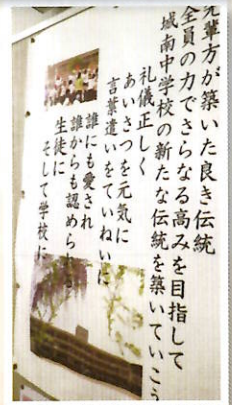 先輩方が築いた良き伝統
全員の力でさらなる高みを目指して
城南中学校の新たな伝統を築いていこう
礼儀正しく
あいさつを元気に
言葉遣いをていねいに
誰にも愛され
誰からも認められる
生徒に
そして学校に